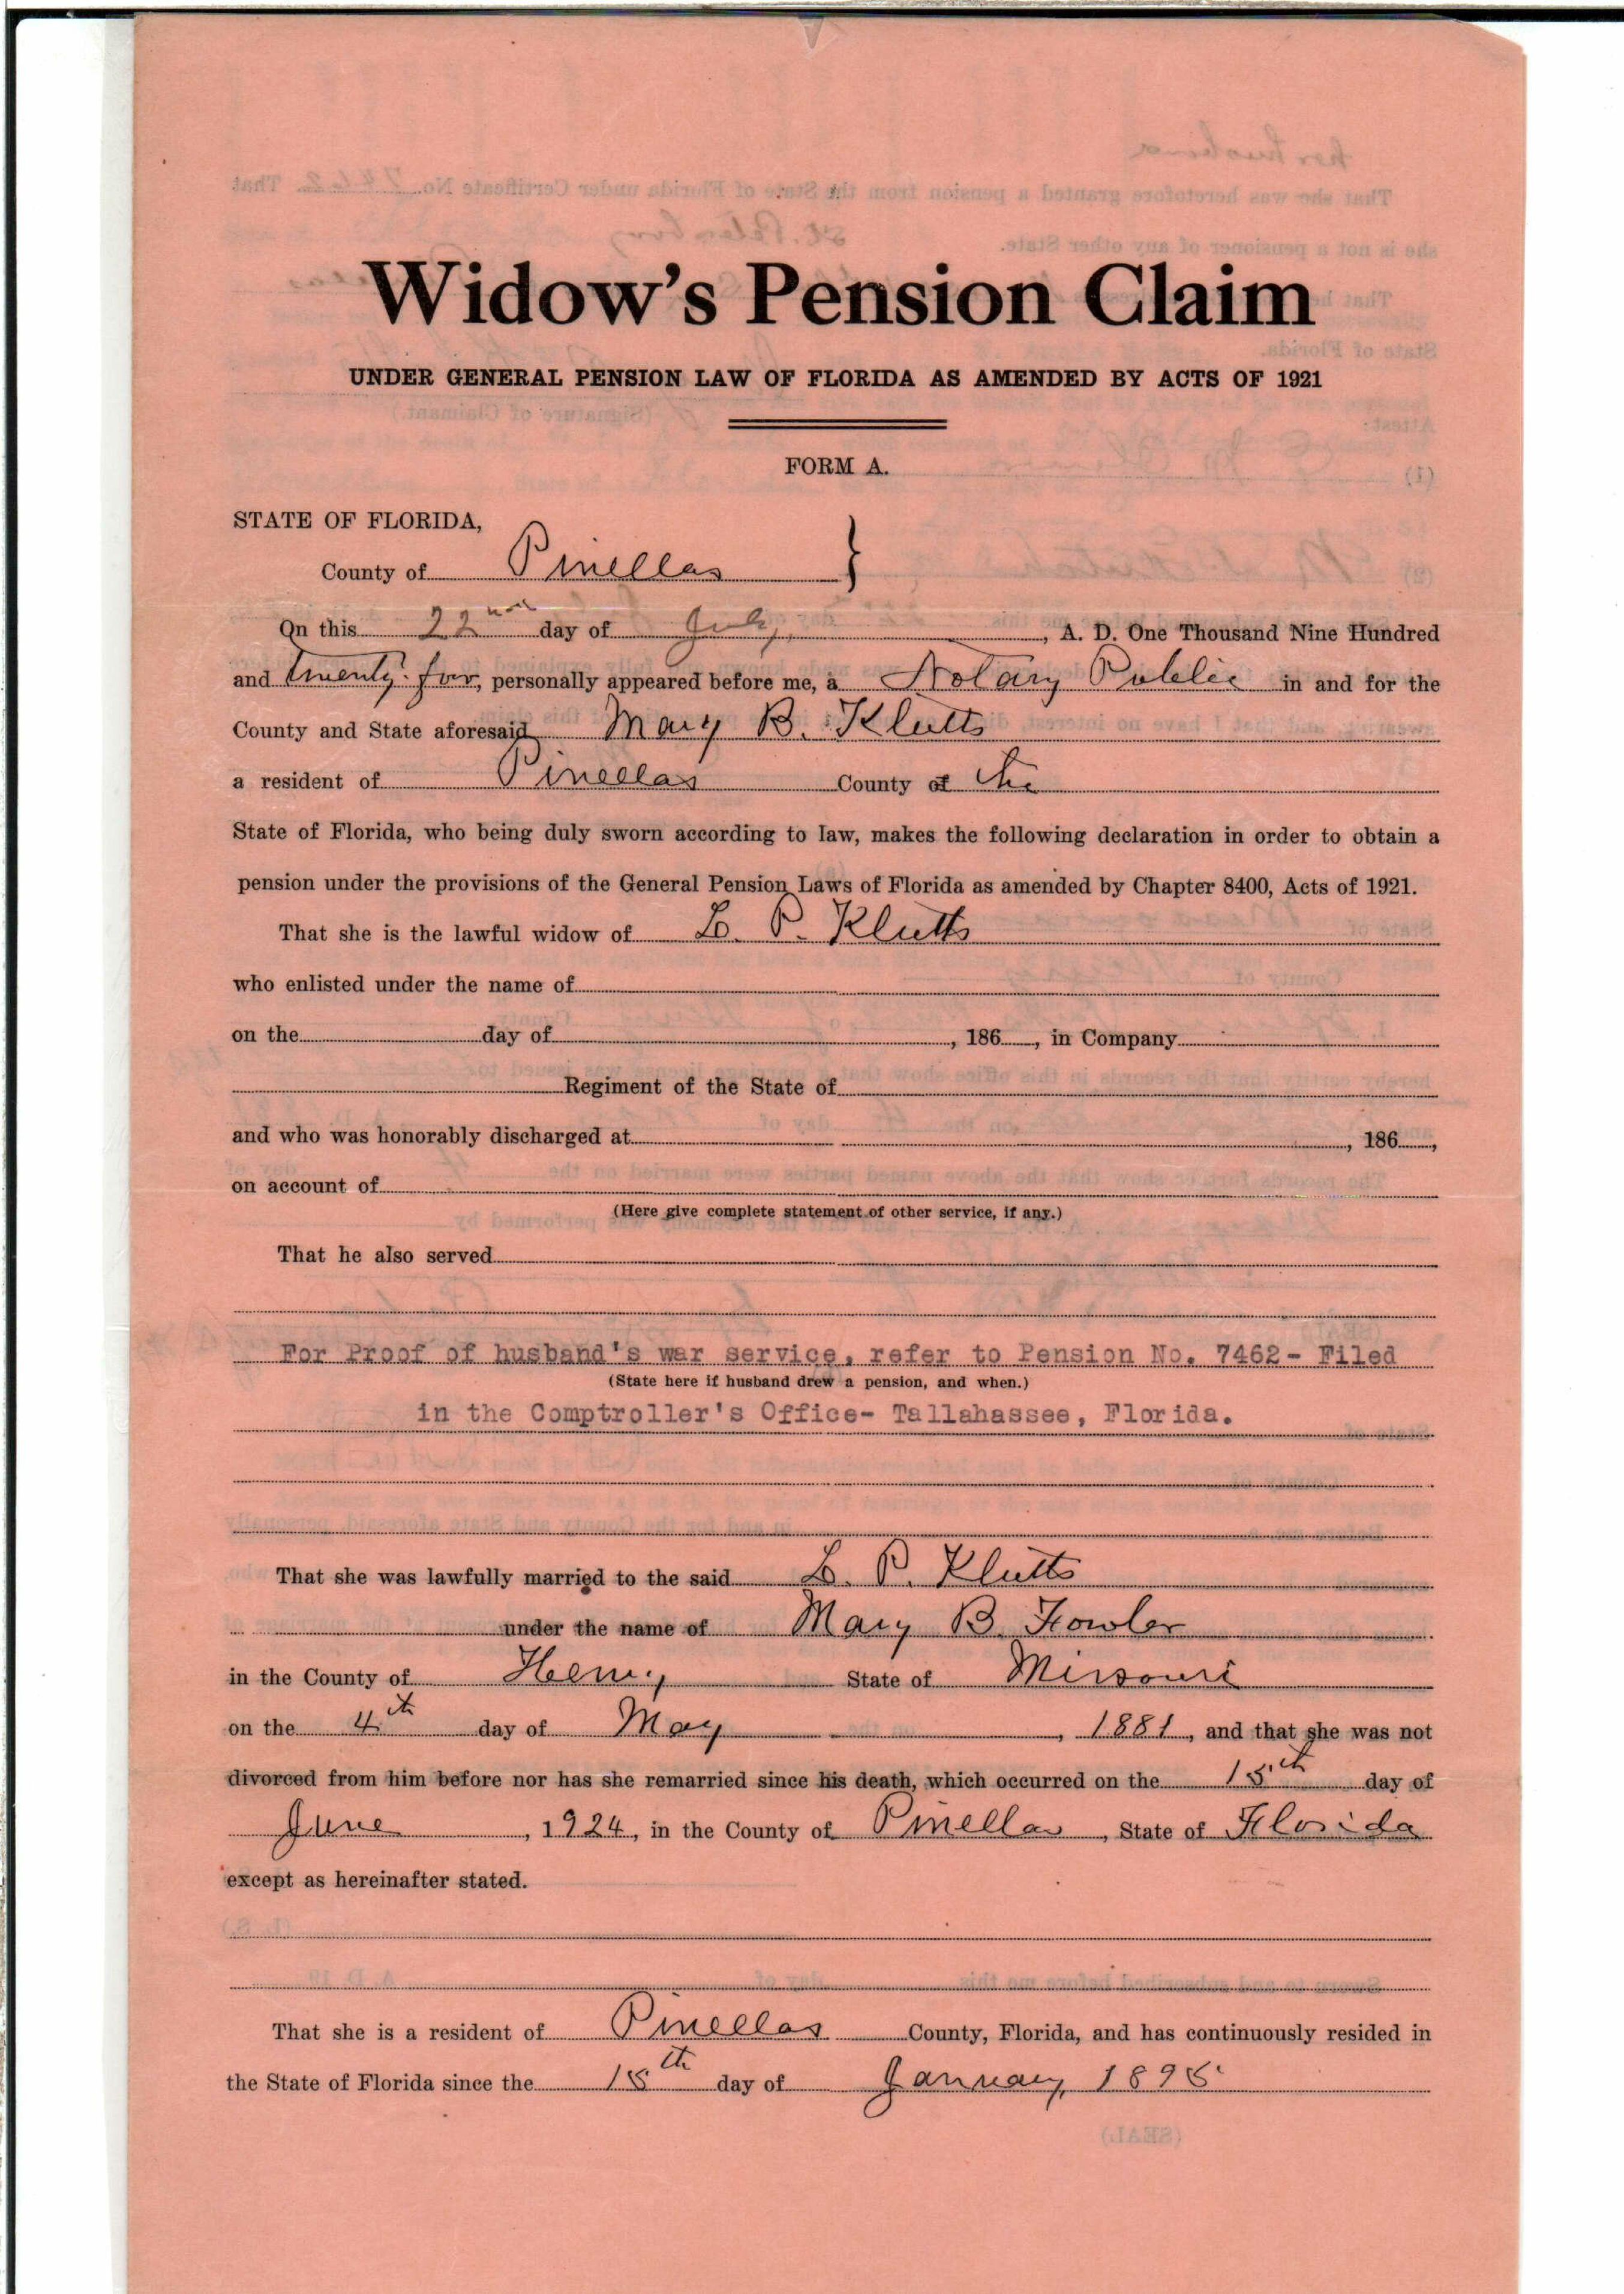 Widow's Pension Claim
UNDER GENERAL PENSION LAW OF FLORIDA AS AMENDED BY ACTS OF 1921
FORM A.
STATE OF FLORIDA,
County of Pinellas }
On this 22nd day of July, A. D. One Thousand Nine Hundred
and twenty-four, personally appeared before me, a Notary Public in and for the
County and State aforesaid Mary B. Klutts
a resident of Pinellas County of the
State of Florida, who being duly sworn according to law, makes the following declaration in order to obtain a
pension under the provisions of the General Pension Laws of Florida as amended by Chapter 8400, Acts of 1921.
That she is the lawful widow of L. P. Klutts
who enlisted under the name of
on the day of , 186 , in Company
Regiment of the State of
and who was honorably discharged at , 186 ,
on account of
(Here give complete statement of other service, if any.)
That he also served
For Proof of husband's war service, refer to Pension No. 7462- Filed
(State here if husband drew a pension, and when.)
in the Comptroller's Office- Tallahassee, Florida.
That she was lawfully married to the said L. P. Klutts
under the name of Mary B. Fowler
in the County of Henry State of Missouri
on the 4th day of May , 1881, and that she was not
divorced from him before nor has she remarried since his death, which occurred on the 15th day of
June , 1924, in the County of Pinellas, State of Florida
except as hereinafter stated.
That she is a resident of Pinellas County, Florida, and has continuously resided in
the State of Florida since the 15th day of January, 1895